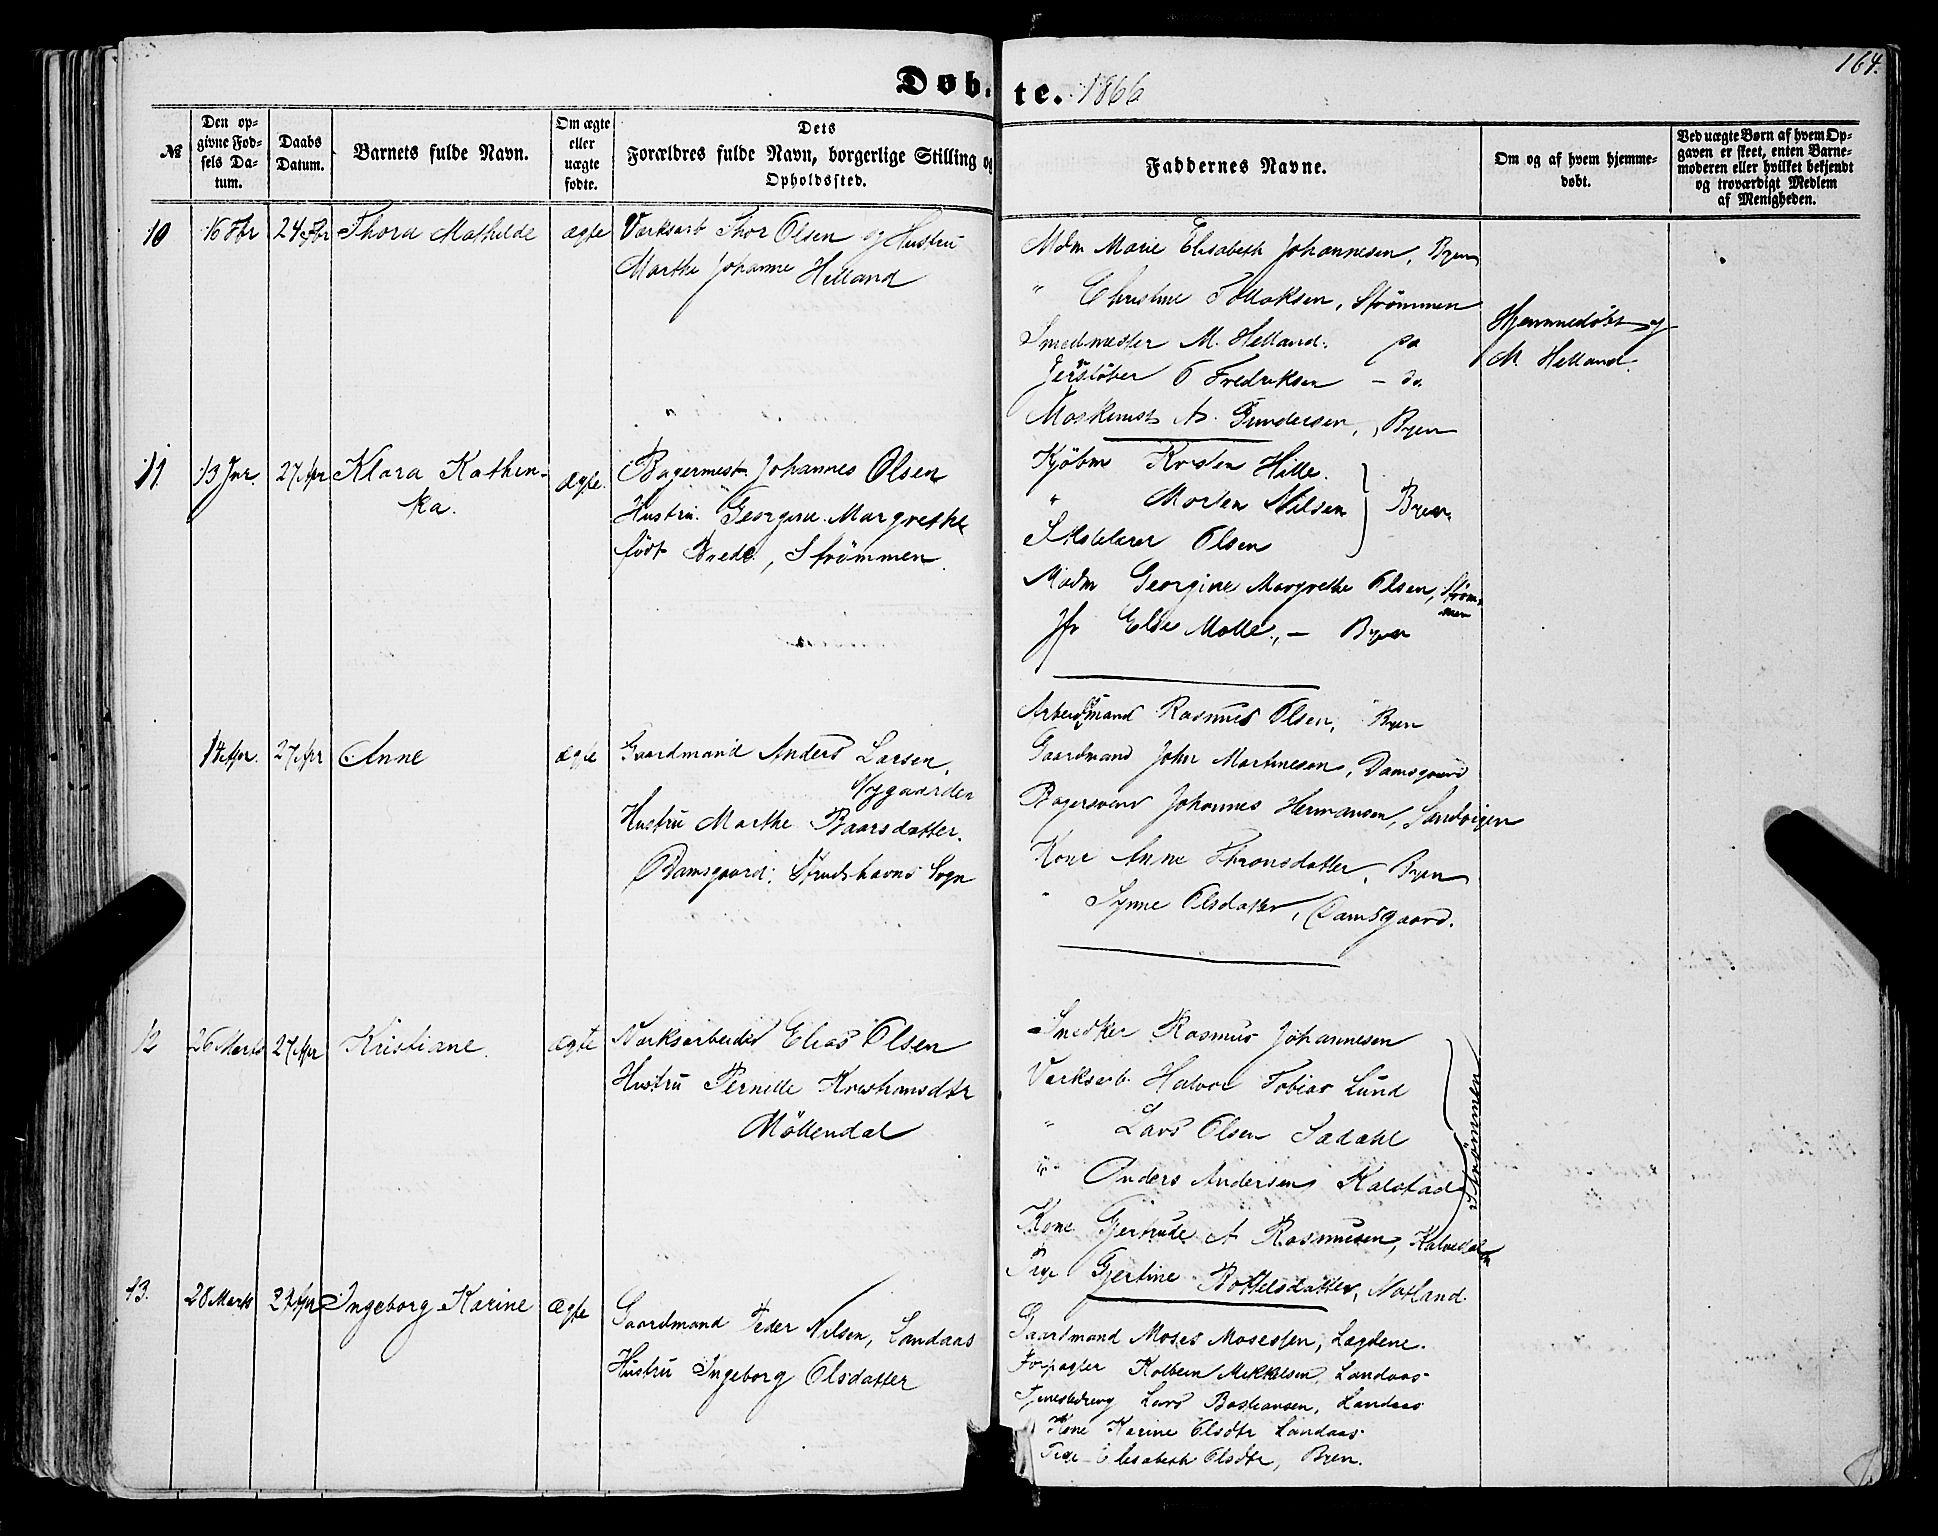 164.
Døbte. 1866
№
Den opgivne Fødsels Datum.
Daabs Datum.
Barnets fulde Navn.
Om ægte eller uægte fødte.
Dets Forældres fulde Navn, borgerlige Stilling og Opholdssted.
Faddernes Navne.
Om og af hvem hjemmedøbt.
Ved uægte Børn af hvem Opgaven er skeet, enten Barnemoderen eller hvilket bekjendt og troværdigt Medlem af Menigheden.
10 16 Fbr 24 Thora Mathilde ægte Værksarb Thor Olsen og Hustru
Marthe Johanne Helland
Mdm Marie Elisabeth Johannesen, Byen
" Christine Follaksen, Strømmen
Smedmester M. Helland.
Fredriksen - do.
A. Gundersen, Byen
Hjemmedøbt af
M. Helland.
11 13 Jnr. 27 Apr Klara Kathin-
ka.
ægte. Bagermest. Johannes Olsen
Hustru Georgine Margrethe
født Brede, Strømmen.
Kjøbm Kristen Hille.
" Morten Nilsen } Byen
Olsen
Madm Georgine Margrethe Olsen, Strøm-
men
Jfr Else Molle, - Byen
14 Apr. 27 Apr Anne ægte Gaardmand Anders Larsen,
Nygaarden
Hustru Marthe Baarsdatter.
Damsgaard, Sogn
Arbeidsmand Rasmus Olsen, Byen
Gaardmand John Martinesen, Damsgaard
Bagersvend Johannes Hermansen, Sandvigen
Kone Anne Thronsdatter, Byen
" Synne Olsdatter, Damsgaard.
12 26 Marts 27 Apr Kristiane. ægte Værksarbeider Elias Olsen
Hustru Pernille Kristiansdtr
Møllendal
Snedker Rasmus Johannesen
Værksarb. Halvor Tobias Lund
" Lars Olsen Sædahl
" Anders Andersen Kalstad
Strømmen
Kone Gjertrude A Rasmusen, Kalvedalen
Pige Gjertine Bottelsdatter, Natland.
13. 28 Marts 29 Apr Ingeborg Karine ægte Gaardmand Peder Nilsen, Landaas
Hustru Ingeborg Olsdatter
Gaardmand Moses Mosessen, Lægdene.
Forpagter Kolbein Mikkelsen, Landaas
Tjenestedreng Lars Bastiansen, Landaas
Kone Karine Olsdtr Landaas
Pige Elisabeth Olsdtr, Byen.